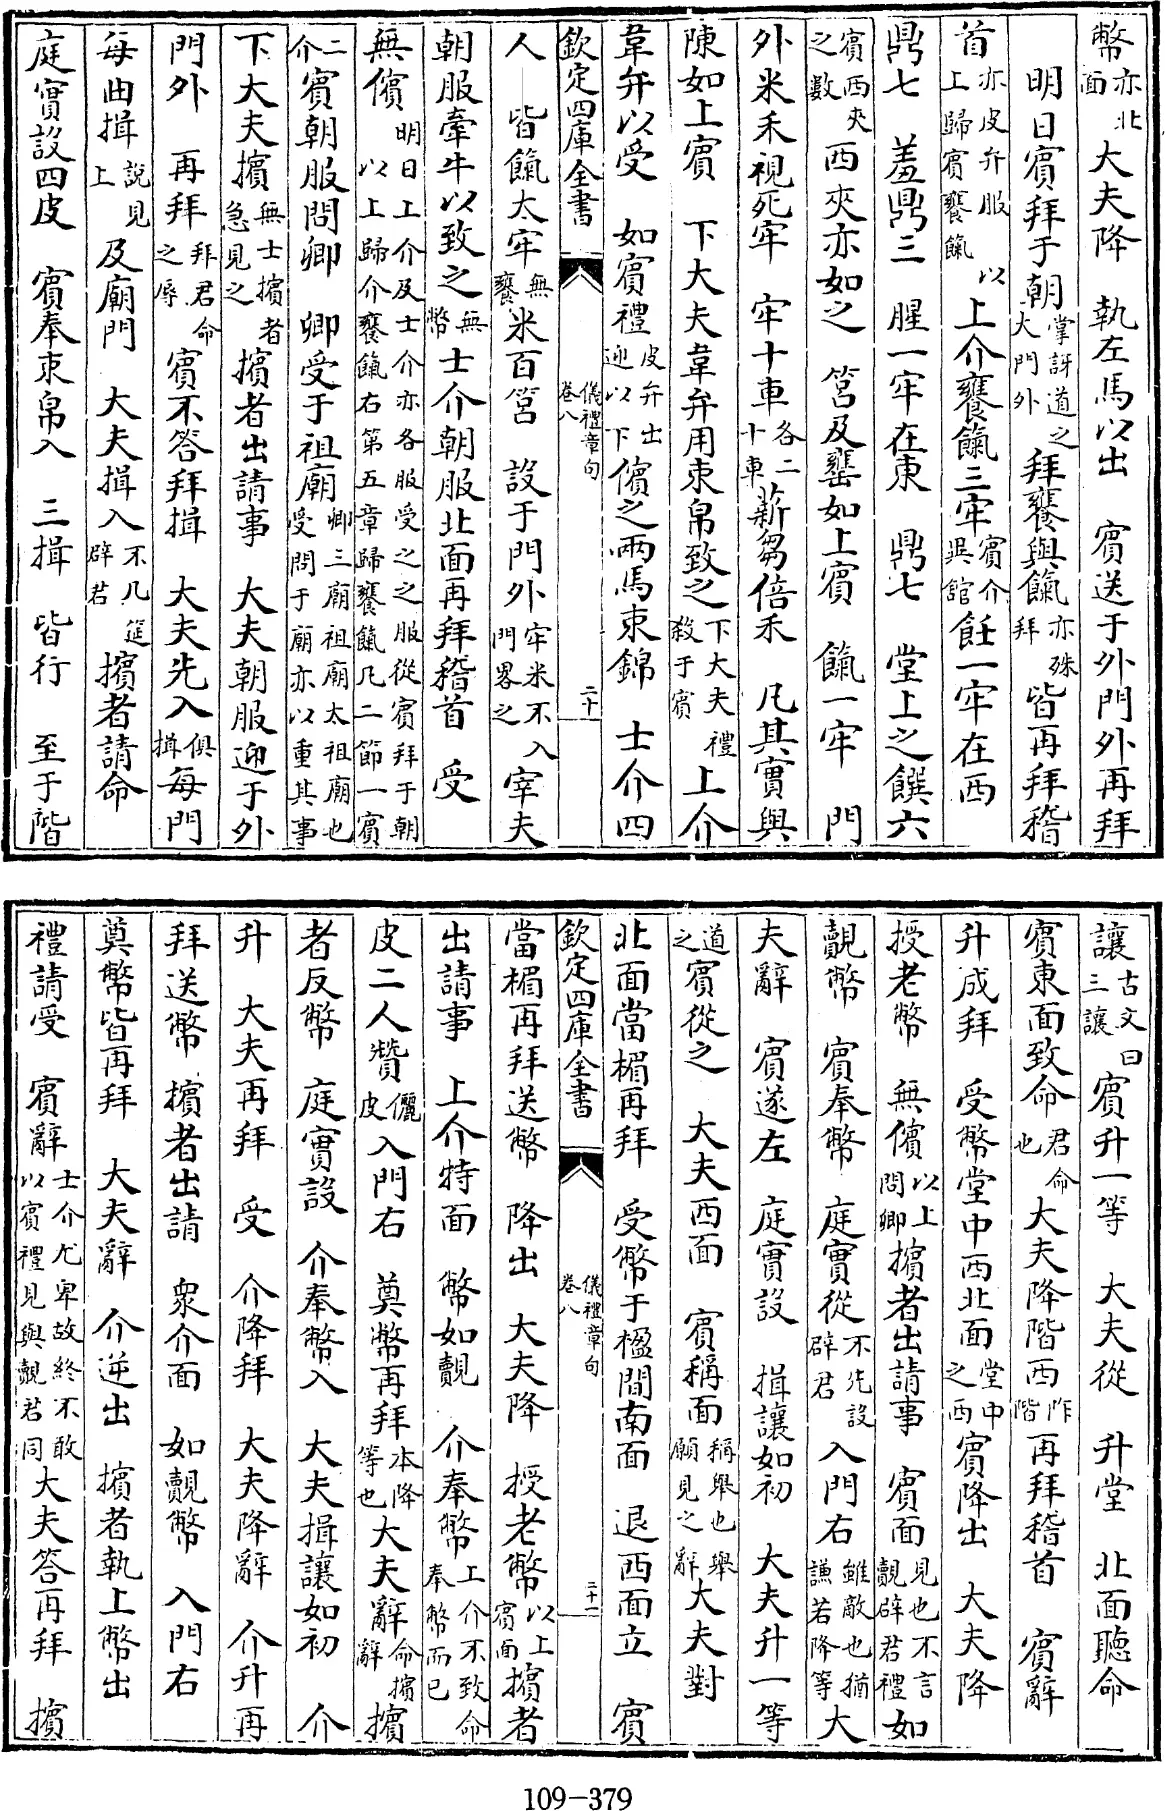 幣亦北面大夫降 執左馬以出 賓送于外門外再拜
明日賓拜于朝掌訝道之大門外拜饔與餼亦殊拜皆再拜稽
首亦皮弁服以上歸賓饔餼上介饔餼三牢賓介異館飪一牢在西
鼎七 羞鼎三 腥一牢在東 鼎七 堂上之饌六
賓西夾之數西夾亦如之 筥及罋如上賓 餼一牢 門
外米禾視死牢 牢十車各二十車薪芻倍禾 凡其實與
陳如上賓 下大夫韋弁用束帛致之下大夫禮殺于賓上介
韋弁以受 如賓禮皮弁出迎以下儐之兩馬束錦 士介四
欽定四庫全書 儀禮章句 卷八 二十
人 皆餼太牢無饔米百筥 設于門外牢米不入門畧之宰夫
朝服牽牛以致之無幣士介朝服北面再拜稽首 受
無儐明日上介及士介亦各服受之之服從賓拜于朝以上歸介饔餼右第五章歸饔餼凡二節一賓
二介賓朝服問卿 卿受于祖廟卿三廟祖廟太祖廟也受問于廟亦以重其事
下大夫擯無士擯者急見之擯者出請事 大夫朝服迎于外
門外 再拜拜君命之辱賓不答拜揖 大夫先入俱揖每門
每曲揖說見上及廟門 大夫揖入不几筵辟君擯者請命
庭實設四皮 賓奉束帛入 三揖 皆行 至于階
讓古文曰三讓賓升一等 大夫從 升堂 北面聽命
賓東面致命君命也大夫降階西阼階再拜稽首 賓辭
升成拜 受幣堂中西北面堂中之西賓降出 大夫降
授老幣 無儐以上問卿擯者出請事 賓面見也不言覿辟君禮如
覿幣 賓奉幣 庭實從不先設辟君入門右雖敵也猶謙若降等大
夫辭 賓遂左 庭實設 揖讓如初 大夫升一等
道之賓從之 大夫西面 賓稱面稱舉也舉願見之辭大夫對
北面當楣再拜 受幣于楹間南面 退西面立 賓
欽定四庫全書 儀禮章句 卷八 二十一
當楣再拜送幣 降出 大夫降 授老幣以上賓面擯者
出請事 上介特面 幣如覿 介奉幣上介不致命奉幣而已
皮二人贊儷皮入門右 奠幣再拜本降等也大夫辭命擯辭擯
者反幣 庭實設 介奉幣入 大夫揖讓如初 介
升 大夫再拜 受 介降拜 大夫降辭 介升再
拜送幣 擯者出請 衆介面 如覿幣 入門右
奠幣皆再拜 大夫辭 介逆出 擯者執上幣出
禮請受 賓辭士介尤卑故終不敢以賓禮見與覿君同大夫答再拜 擯
109-379